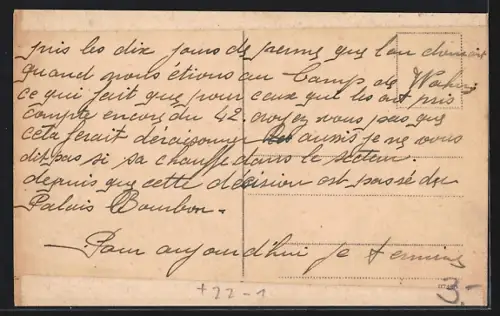 pris les dix jours de perme que l'on donnait
quand nous étions au Camp de
ce qui fait que pour ceux qui les ont pris
compte encore du 42. croyez vous pas que
cela ferait déraisonner aussi je ne vous
dit pas si sa change dans le secteur
depuis que cette décision est passé du
Palais Bourbon.
Pour aujourd'hui je termine
+22-1